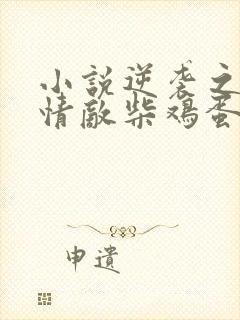 小説逆袭之
情敵柴鸡蛋
申遺